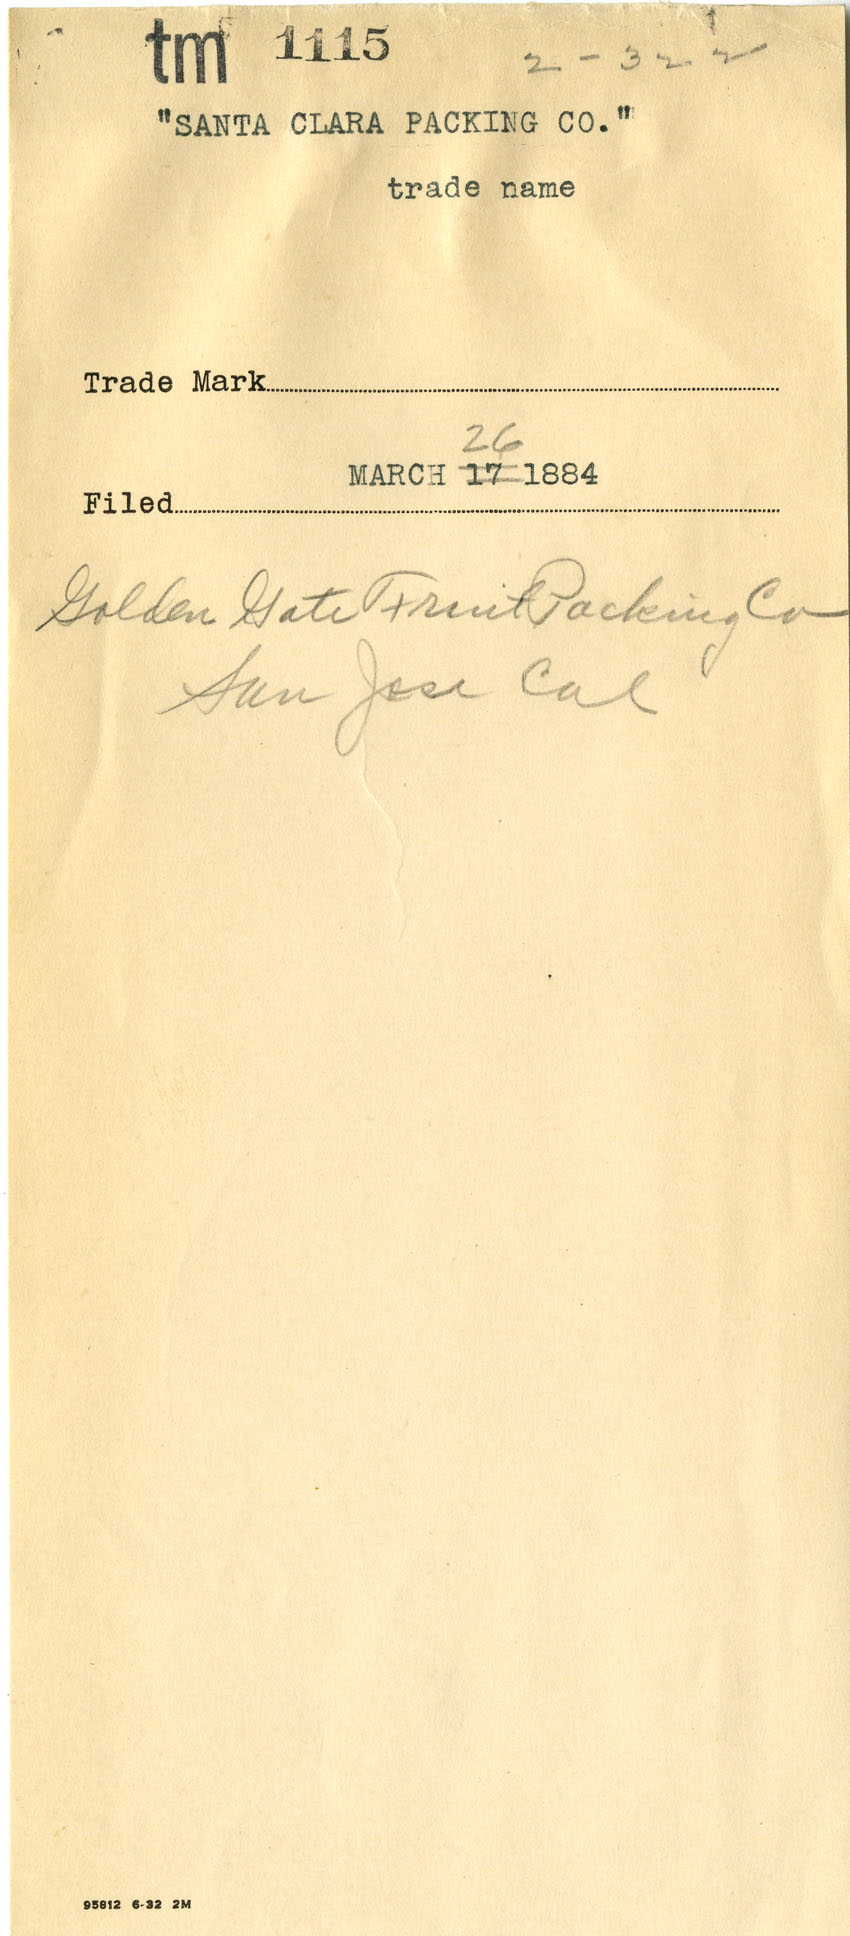 tm 1115 2-322
"SANTA CLARA PACKING CO."
trade name
Trade Mark
26
MARCH 17 1884
Filed
Golden Gate Fruit Packing Co
San Jose Cal
95812 6-32 2M